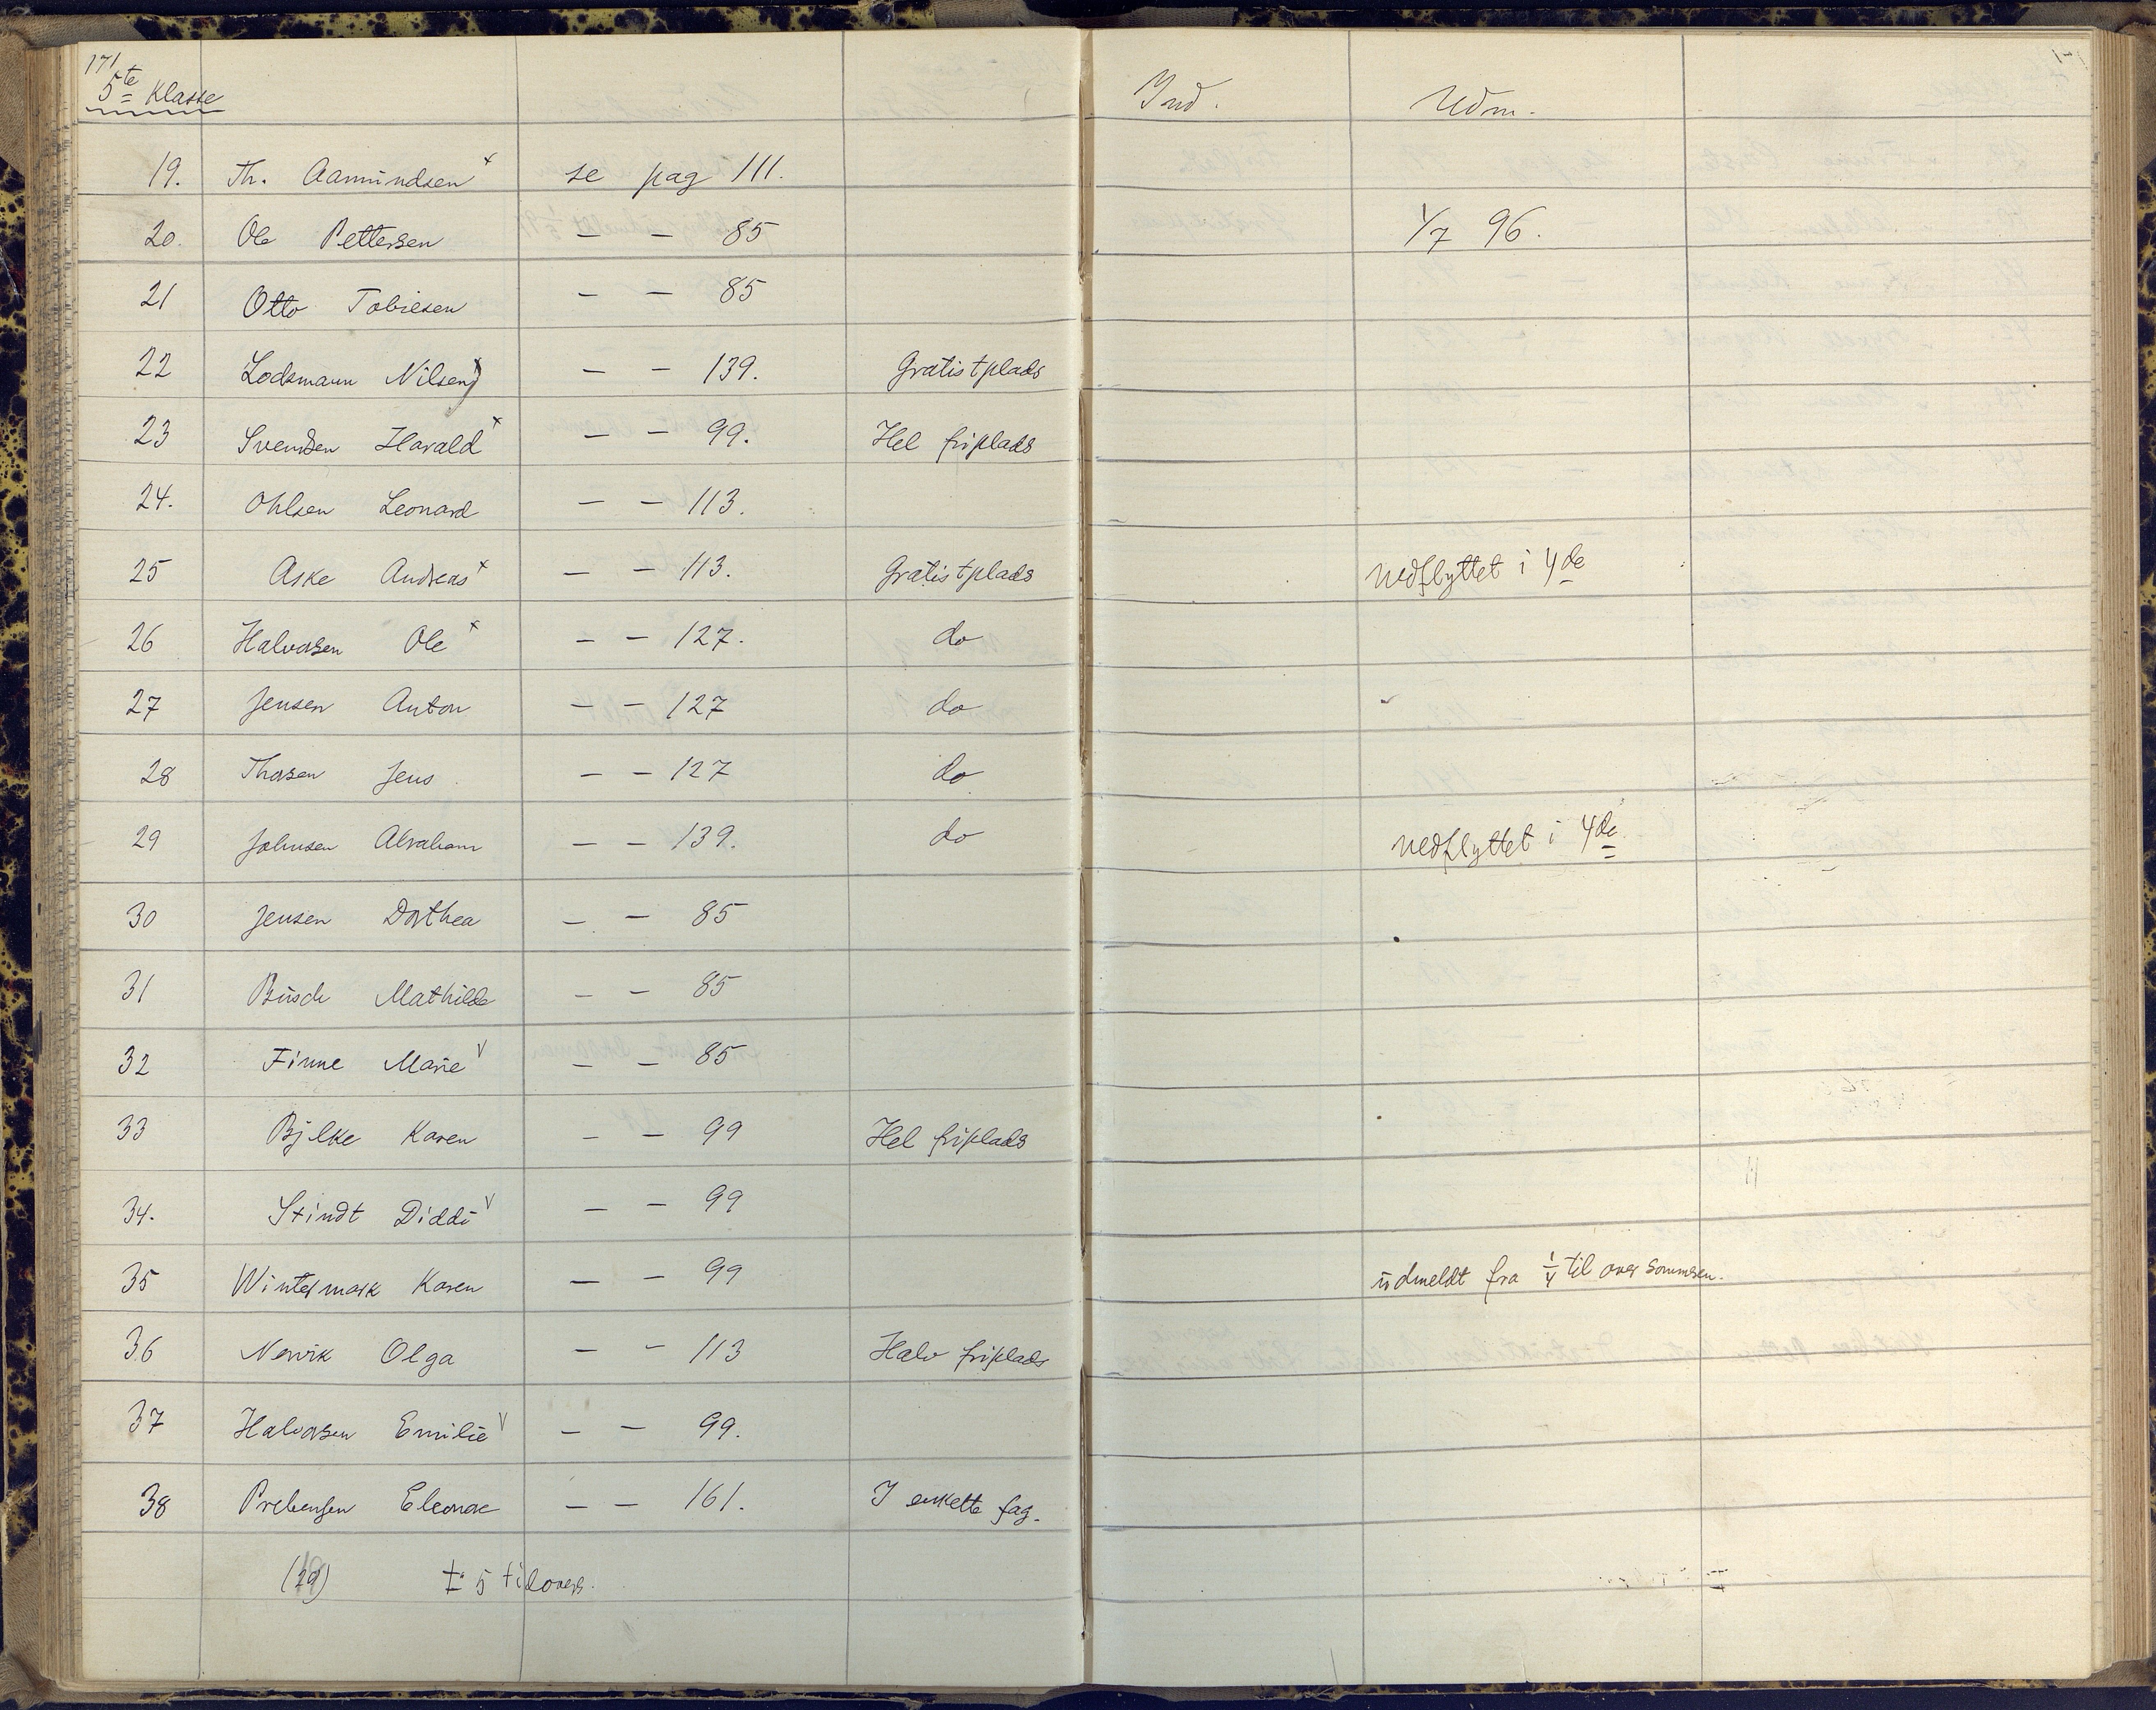 171
5te Klasse
Ind. Udm.
19. Th. Aamundsen x se pag 111.
20. Ole Pettersen — — 85 1/7 96.
21 Otto Tobiesen — — 85
22 Lodsmann Nilsen — — 139. Gratistplads
23 Svendsen Harald x — — 99. Hel friplads
24. Ohlsen Leonard — — 113.
25 Aske Andreas x — — 113. Gratistplads nedflyttet i 4de
26 Halvorsen Ole x — — 127. do
27 Jensen Anton — — 127 do
28 Thorsen Jens — — 127 do
29 Johnsen Abraham — — 139. do nedflyttet i 4de
30 Jensen Dorthea — — 85
31 Busch Mathilde — — 85
32 Finne Marie v — — 85
33 Bjelke Karen — — 99 Hel friplads
34. Stindt Diddi v — — 99
35 Wintermark Karen — — 99 udmeldt fra 1/4 til over sommeren.
36 Nervik Olga — — 113 Halv friplads
37 Halvorsen Emilie v — — 99.
38 Prebensen Eleonore — — 161. I enkelte fag.
5 tilovers.